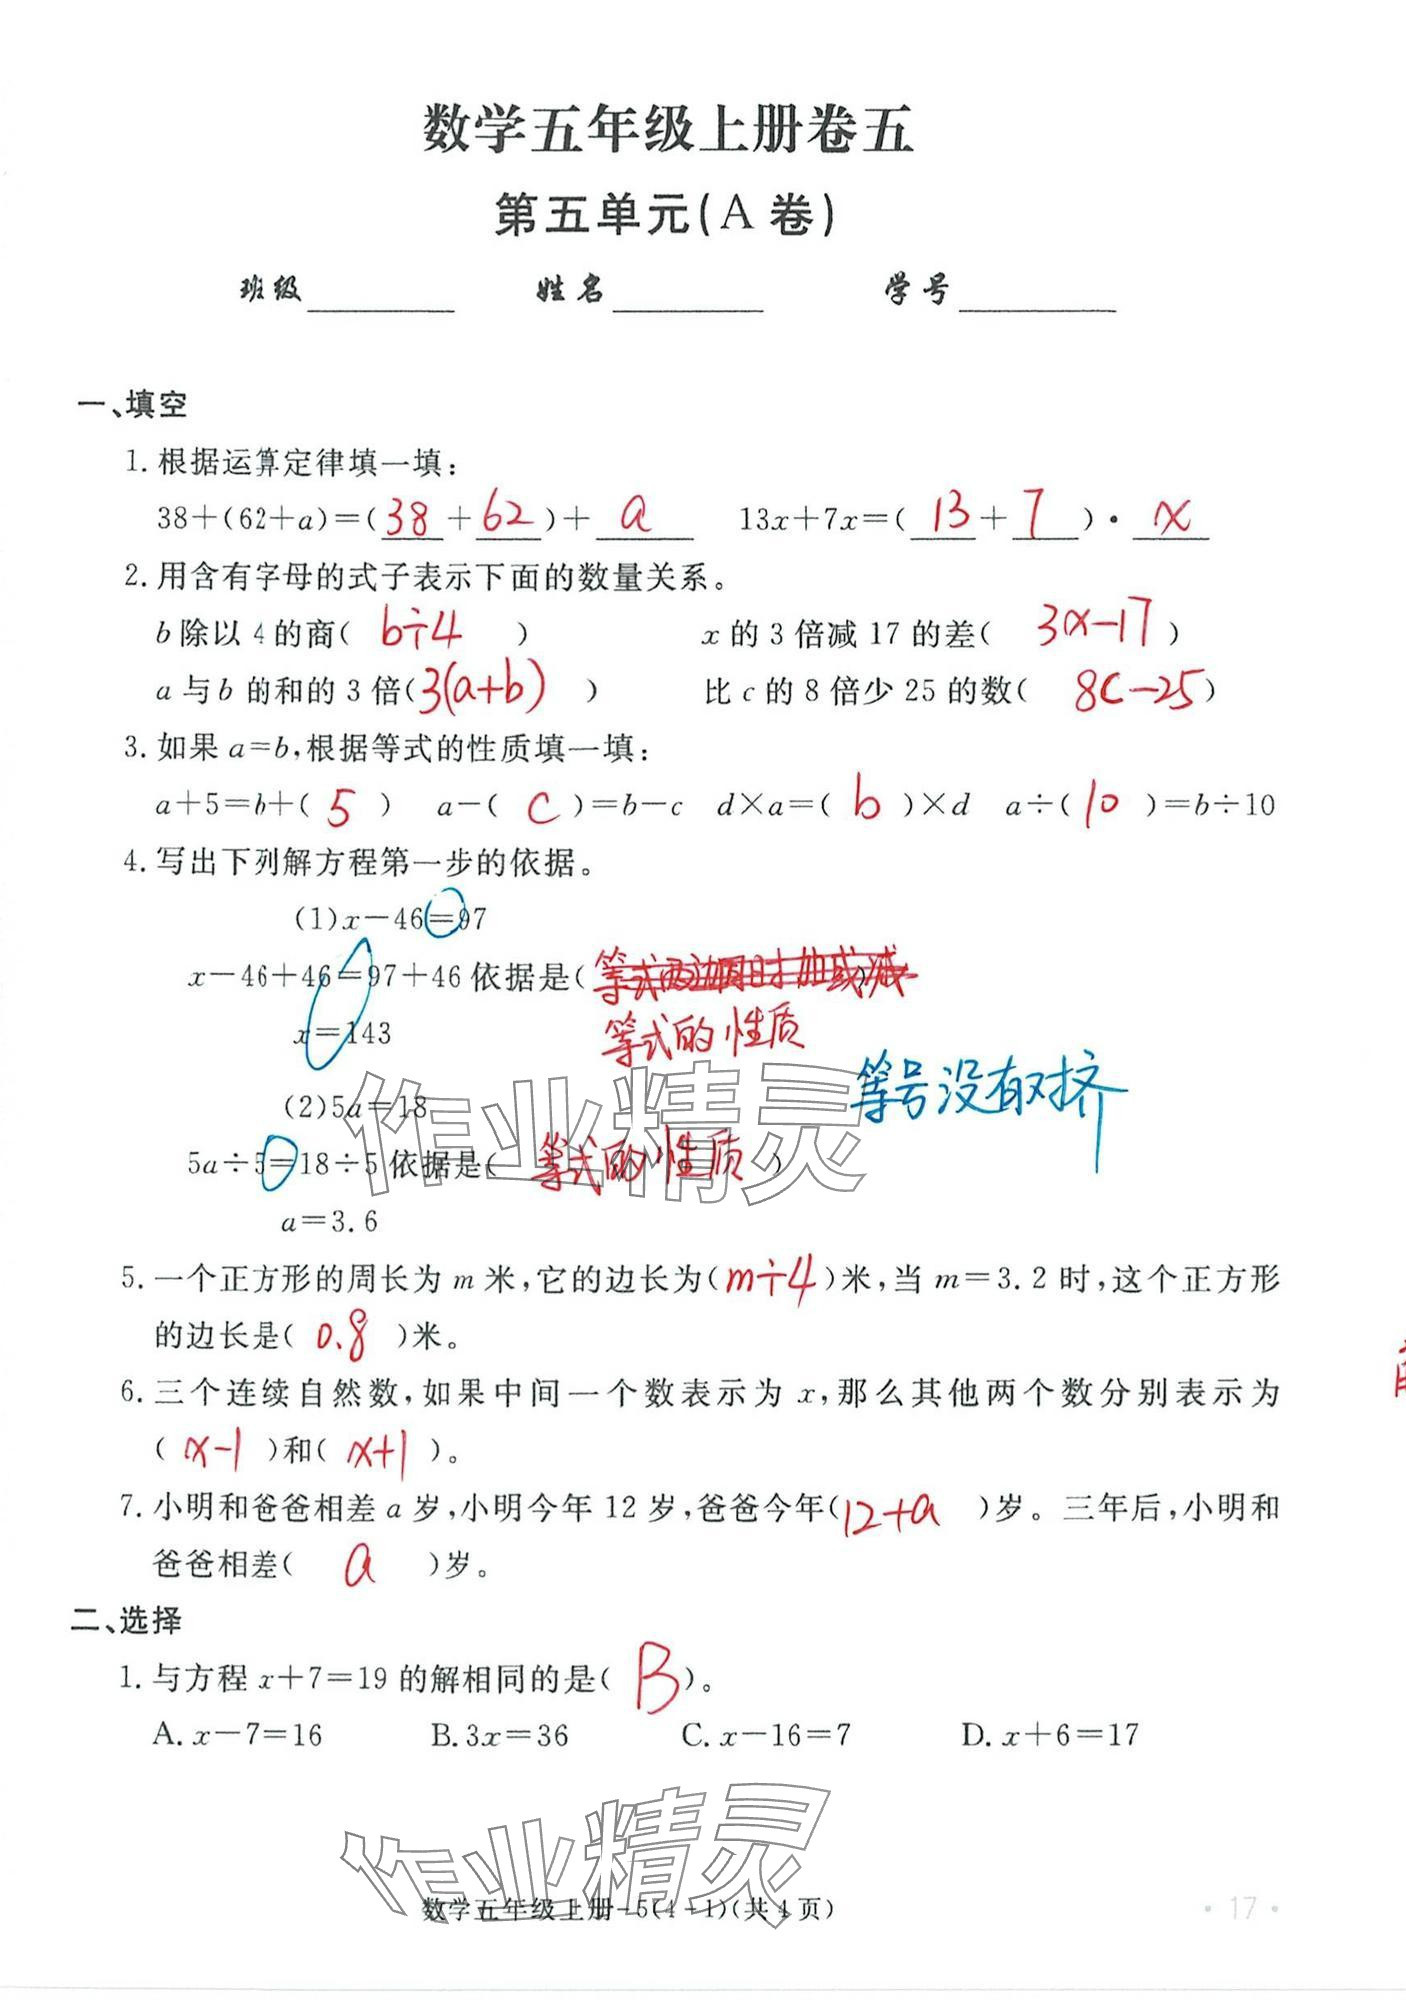 数学五年级上册卷五
第五单元(A卷)
班级 姓名 学号
一、填空
1.根据运算定律填一填:
38+(62+a)=(38+62)+a 13x+7x=(13+7)·x
2.用含有字母的式子表示下面的数量关系。
b除以4的商(b÷4) x的3倍减17的差(3x-17)
a与b的和的3倍(3(a+b)) 比c的8倍少25的数(8c-25)
3.如果a=b,根据等式的性质填一填:
a+5=b+(5) a-(c)=b-c d×a=(b)×d a÷(10)=b÷10
4.写出下列解方程第一步的依据。
(1)x-46=97
x-46+46=97+46依据是(等式两边同时加或减)
x=143 等式的性质
等号没有对挤
(2)5a=18
5a÷5=18÷5依据是(等式的性质)
a=3.6
5.一个正方形的周长为m米,它的边长为(m÷4)米,当m=3.2时,这个正方形
的边长是(0.8)米。
6.三个连续自然数,如果中间一个数表示为x,那么其他两个数分别表示为
(x-1)和(x+1)。
7.小明和爸爸相差a岁,小明今年12岁,爸爸今年(12+a)岁。三年后,小明和
爸爸相差(a)岁。
二、选择
1.与方程x+7=19的解相同的是(B)。
A.x-7=16 B.3x=36 C.x-16=7 D.x+6=17
作业精灵
作业精灵
数学五年级上册-5(4-1)(共4页)
·17·